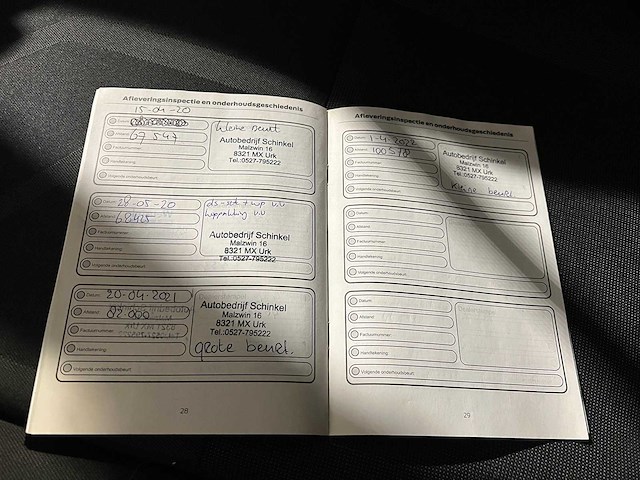 Afleveringsinspectie en onderhoudsgeschiedenis
15-04-20
Datum:
Afstand: 67547
Factuurnummer:
Handtekening:
Volgende onderhoudsbeurt:
kleine beurt
Autobedrijf Schinkel
Malzwin 16
8321 MX Urk
Tel.:0527-795222
Datum: 28-05-20
Afstand: 68425
Factuurnummer:
Handtekening:
Volgende onderhoudsbeurt:
Autobedrijf Schinkel
Malzwin 16
8321 MX Urk
Tel.:0527-795222
Datum: 20-04-2021
Afstand: 82 000
Factuurnummer:
Handtekening:
Volgende onderhoudsbeurt:
Autobedrijf Schinkel
Malzwin 16
8321 MX Urk
Tel.:0527-795222
grote beurt.
28
Afleveringsinspectie en onderhoudsgeschiedenis
Datum: 1-4-2022
Afstand:
Factuurnummer:
Handtekening:
Volgende onderhoudsbeurt:
Autobedrijf Schinkel
Malzwin 16
8321 MX Urk
Tel.:0527-795222
kleine beurt
Datum:
Afstand:
Factuurnummer:
Handtekening:
Volgende onderhoudsbeurt:
Datum:
Afstand:
Factuurnummer:
Handtekening:
Volgende onderhoudsbeurt:
29